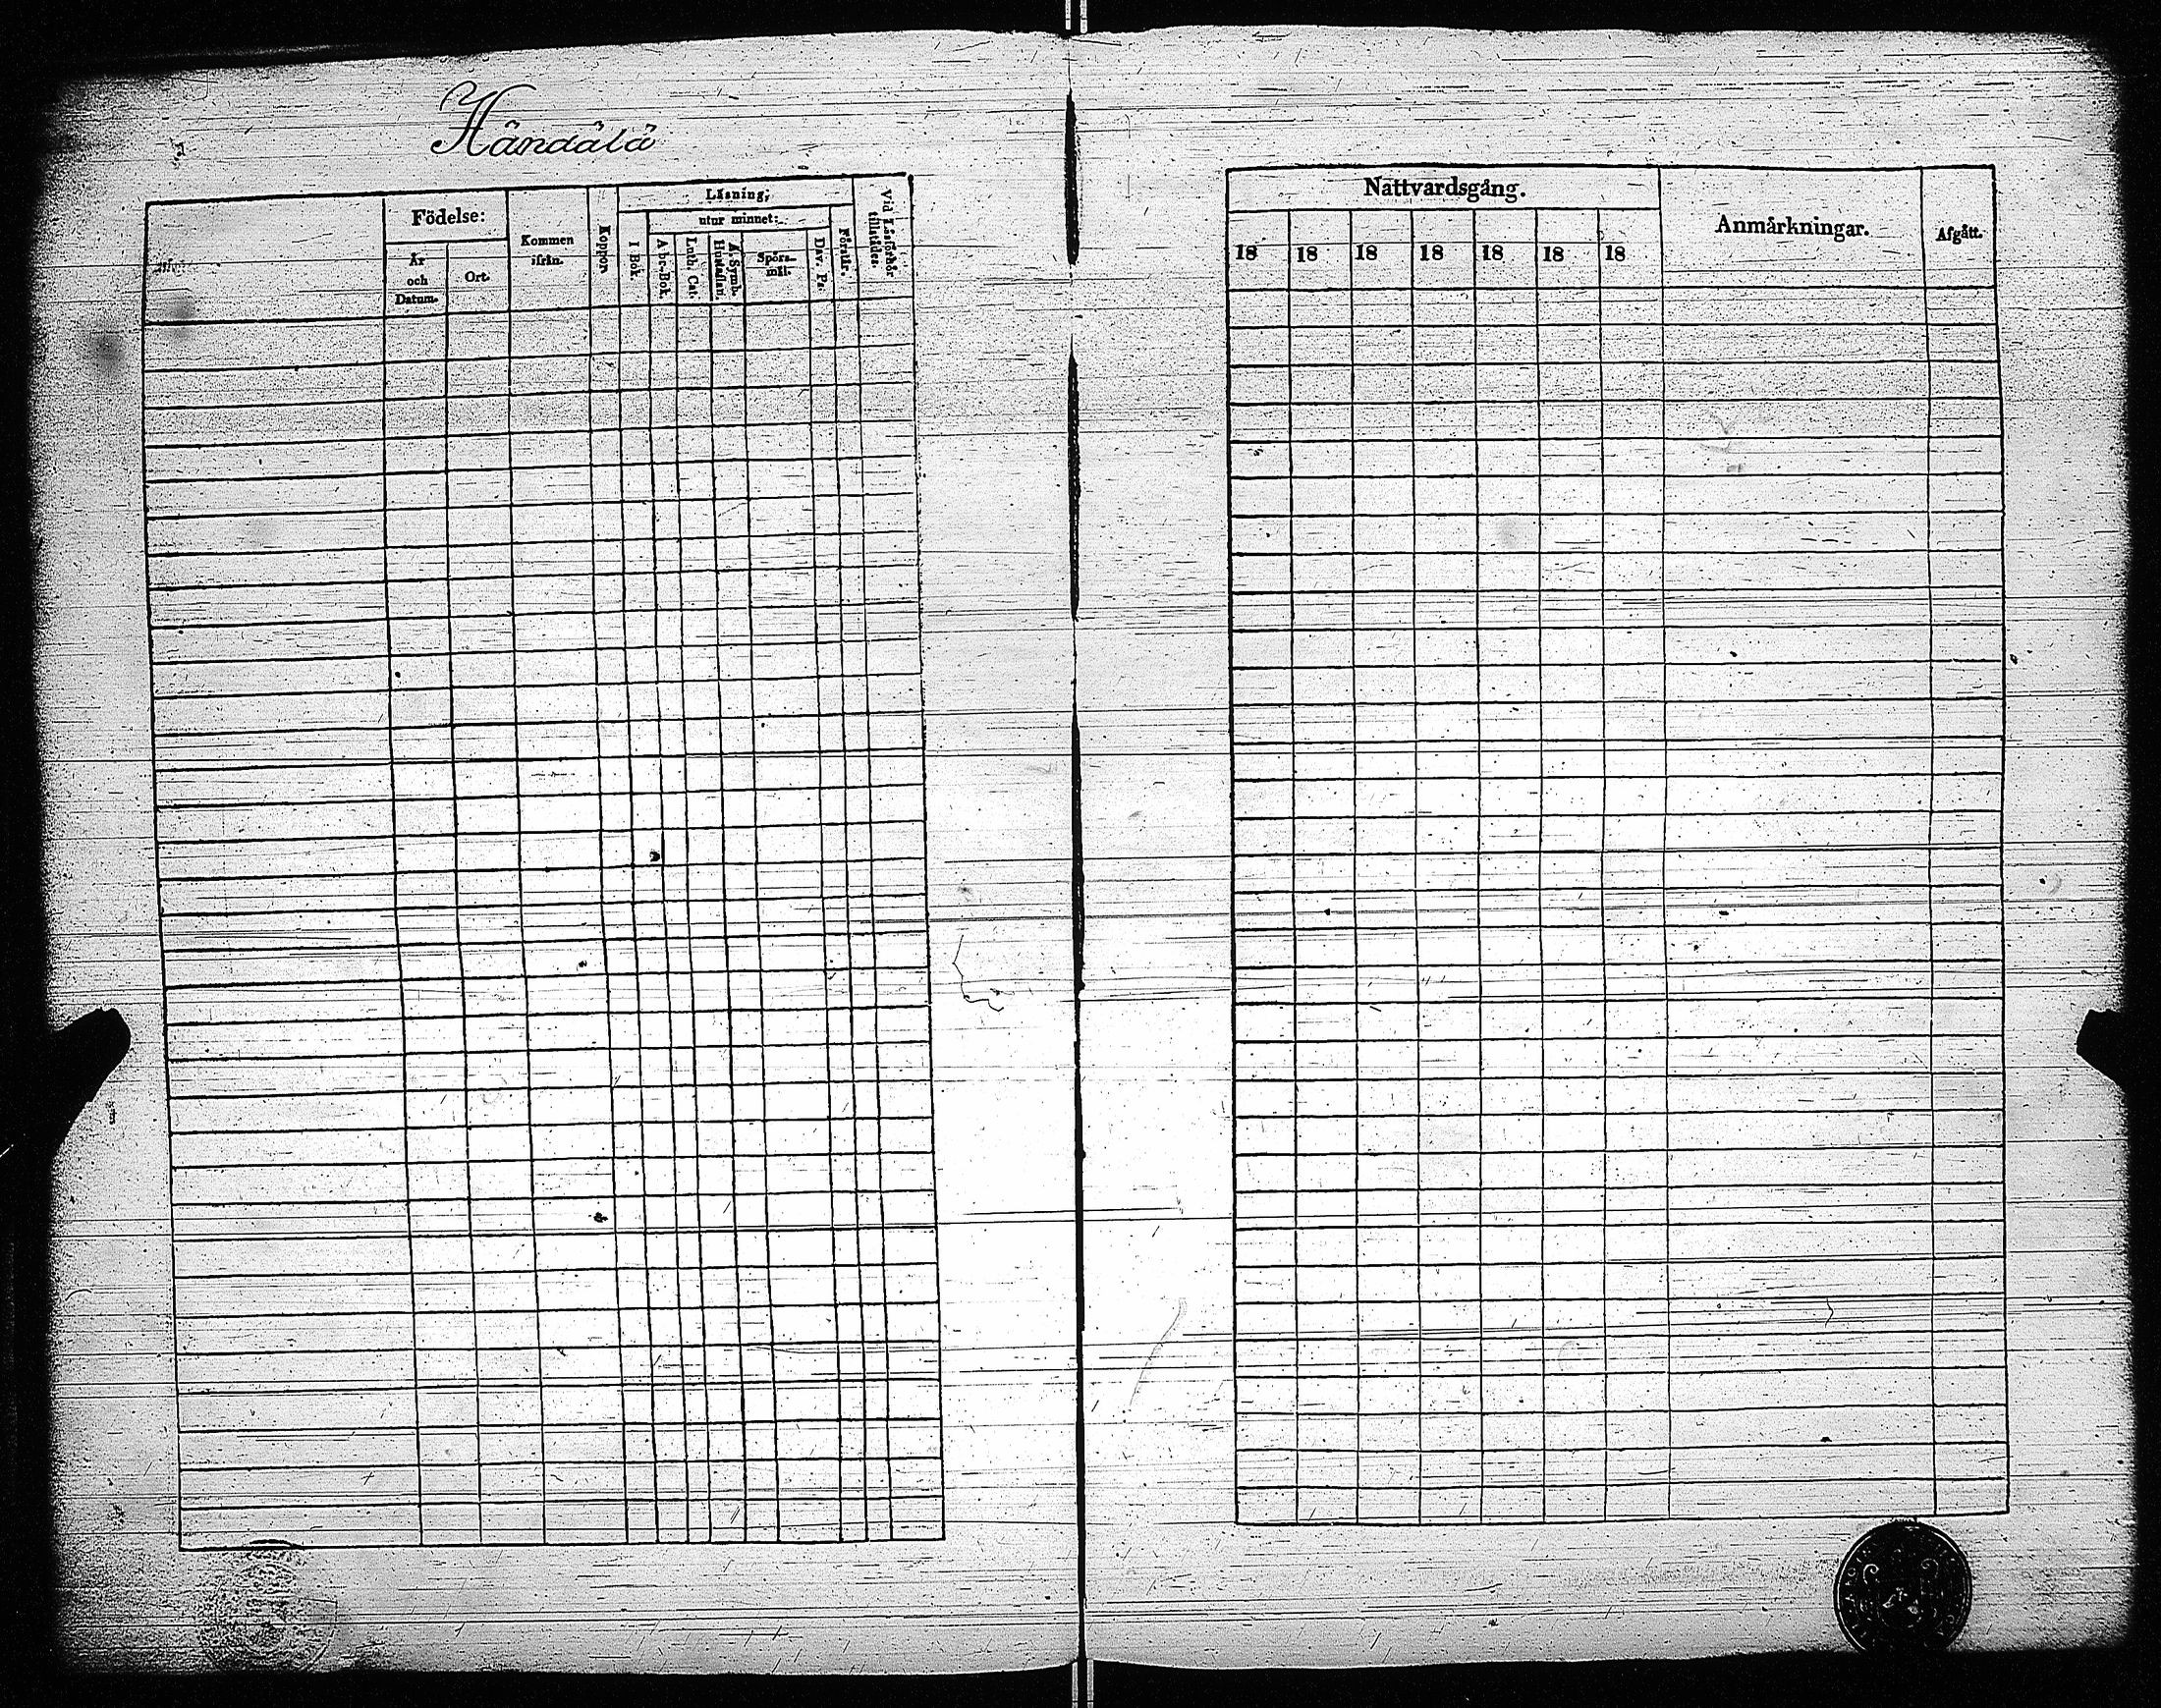 Händälä
Födelse:
År
och
Datum.
Ort.
Kommen
ifrån.
Koppor.
Läsning;
utur minnet:
I Bok.
Abc-Bok.
Luth. Cat.
A. Symb.
Hustaflan.
Spörs-
mål.
Dav. Ps.
Förstår.
Vid Läsförhör
tillstädes.
Nattvardsgång.
18 18 18 18 18 18 18
Anmärkningar.
Afgått.